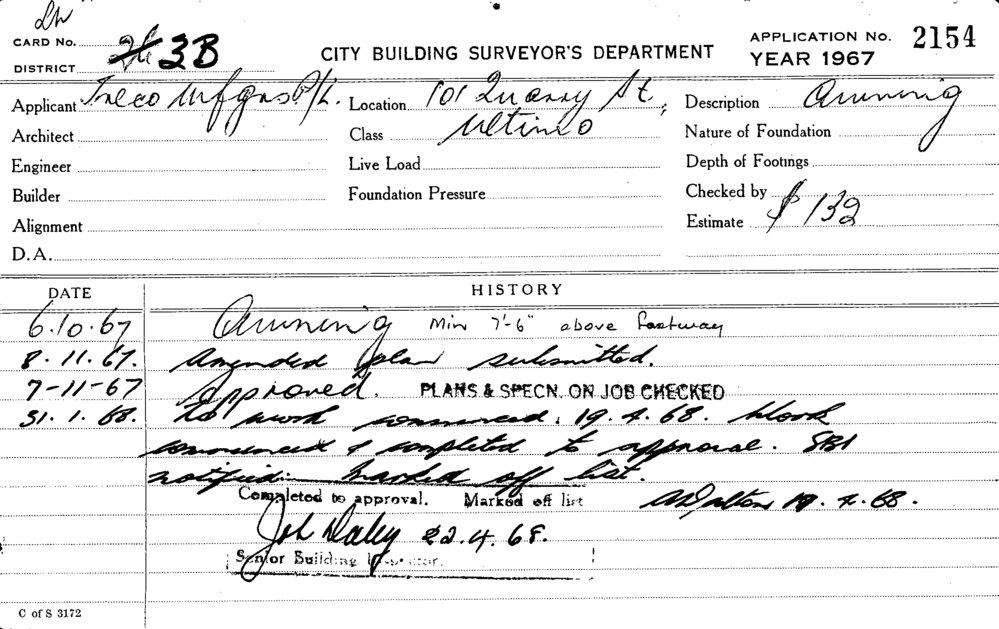 CARD No. 3B
DISTRICT
CITY BUILDING SURVEYOR'S DEPARTMENT
APPLICATION No. 2154
YEAR 1967
Applicant Treco Mfgrs P/L.
Location 101 Quarry St,
Description Awning
Architect
Class Ultimo
Nature of Foundation
Engineer
Live Load
Depth of Footings
Builder
Foundation Pressure
Checked by
Alignment
Estimate $ 132
D.A.
DATE
HISTORY
6.10.67 Awning Min 7'-6" above footway
8.11.67. Amended plan submitted.
7-11-67 Approved. PLANS & SPECN. ON JOB CHECKED
31.1.68. No work commenced. 19.4.68. Work
commenced & completed to approval. SBI
notified. Marked off list.
Completed to approval. Marked off list
19.4.68.
Daley 22.4.68.
Senior Building Inspector.
C of S 3172